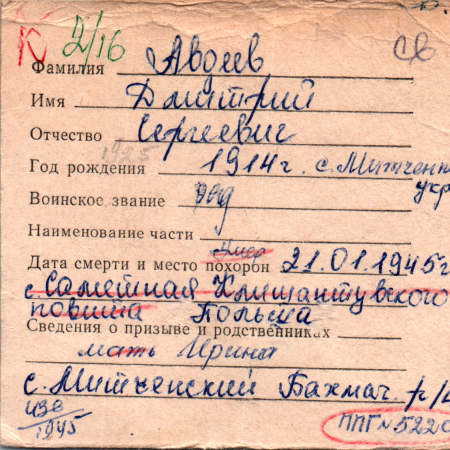 К 2/16 св
Фамилия Авдеев
Имя Дмитрий
Отчество Сергеевич
1925
Год рождения 1914г. с. Митченк
укр
Воинское звание ряд
Наименование части
умер
Дата смерти и место похорон 21.01.1945г
с. Самейная
повята Польша
Сведения о призыве и родственниках
мать Ирина
с. Митченский Бахмач. р/н
1945
ППГ№5220